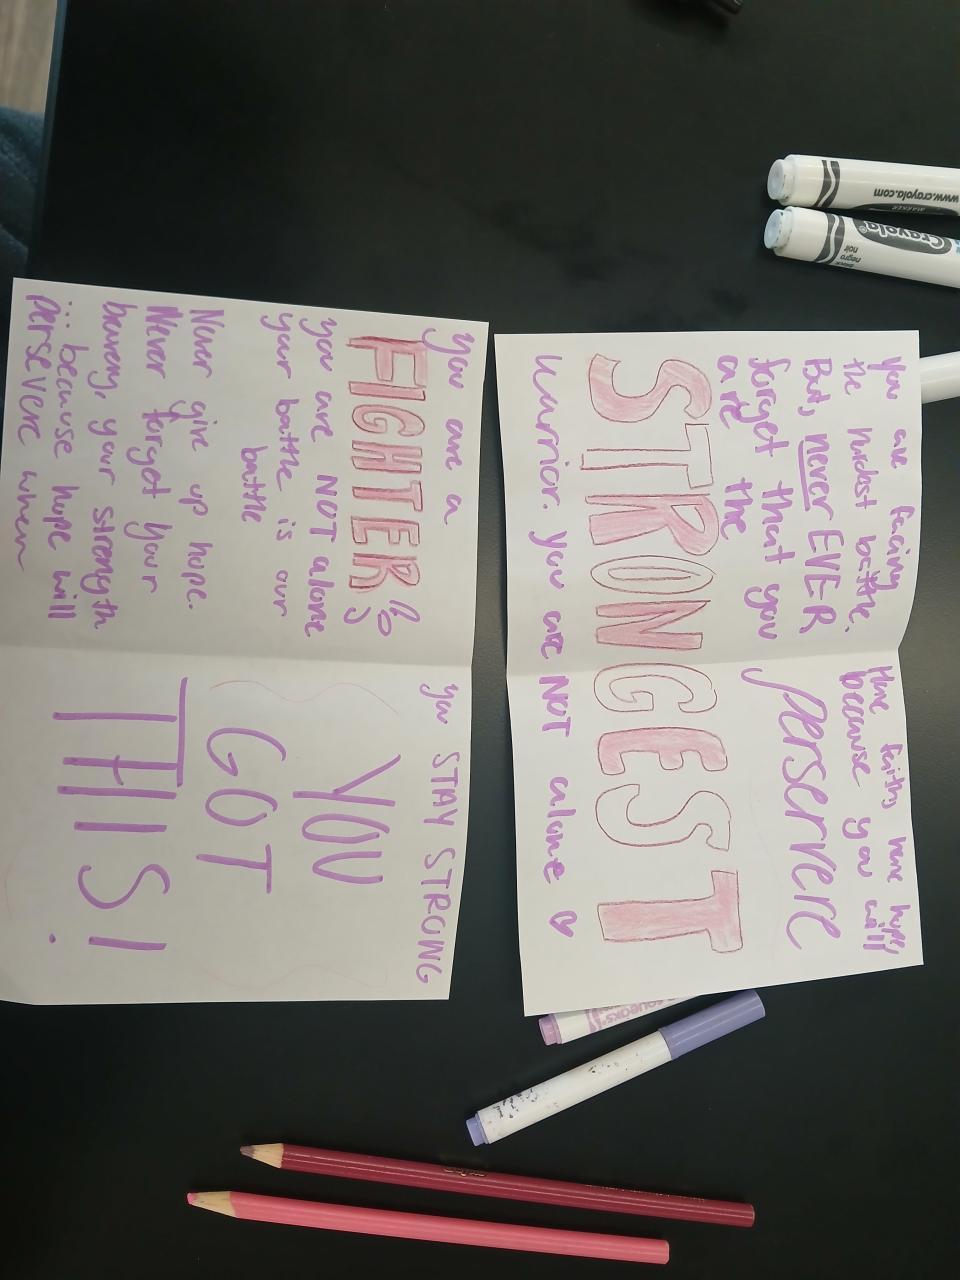 you are facing
the hardest battle.
But, never EVER
forget that you
are the
Have faith, have hope,
because you will
perservere
STRONGEST
warrior. you are NOT alone ♡
you are a
FIGHTER
you are NOT alone
your battle is our
battle
Never give up hope.
Never forget your
bravery, your strength
... because hope will
persevere when
you STAY STRONG
YOU
GOT
THIS!
www.crayola.com
MARKER
Crayola
negro
noir